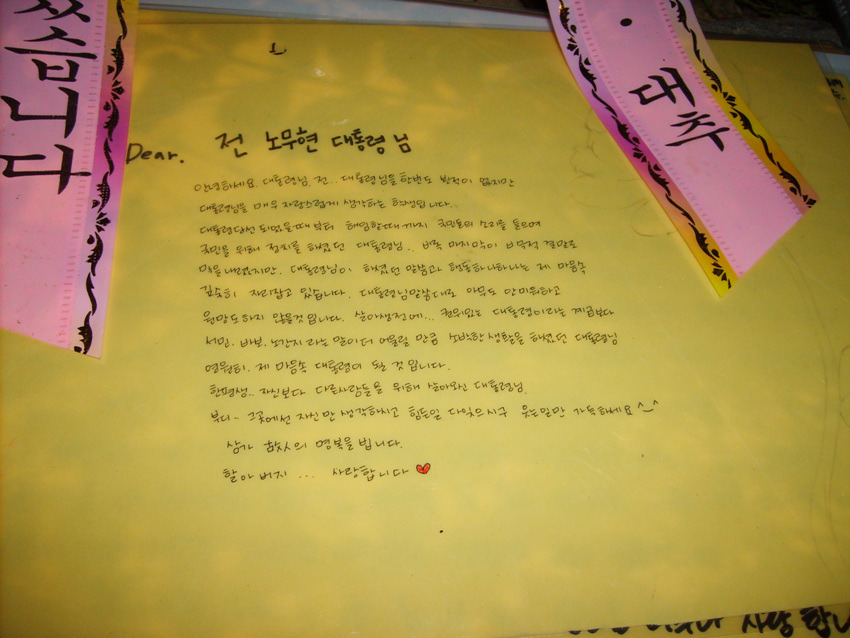 았습니다
대추
Dear. 전 노무현 대통령님
안녕하세요. 대통령님. 전.. 대통령님을 한번도 뵌적이 없지만
대통령님을 매우 자랑스럽게 생각하는 학생입니다..
대통령당선 되었을때부터 퇴임할때까지 국민들의 소리를 들으며
국민을 위해 정치를 하셨던 대통령님.. 비록 마지막이 비극적 결말로
막을내렸지만. 대통령님이 하셨던 말씀과 행동하나하나는 제 마음속
깊숙히 자리잡고 있습니다. 대통령님말씀대로 아무도 안미워하고
원망도하지 않을것입니다. 살아생전에... 권위있는 대통령이라는 계급보다
서민. 바보. 노간지 라는 말이더 어울릴 만큼 소박한 생활을 하셨던 대통령님
영원히. 제 마음속 대통령이 될 것 입니다.
한평생.. 자신보다 다른사람들을 위해 살아오신 대통령님.
부디.. 그곳에선 자신만 생각하시고 힘든일 다잊으시구 웃는일만 가득하세요^_^
삼가 故人의 명복을 빕니다.
할아버지 ... 사랑합니다 ♥
사랑합니